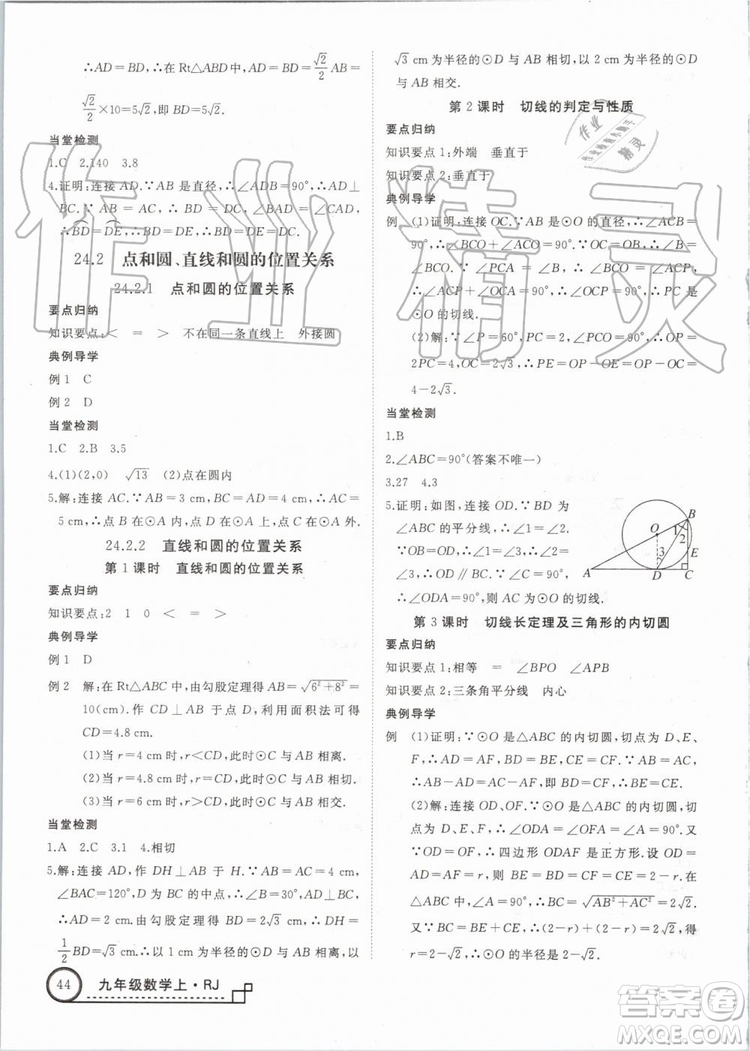 ∴AD=BD,∴在 Rt△ABD 中,AD=BD=√2/2AB=
√2/2×10=5√2,即 BD=5√2.
当堂检测
1.C 2.140 3.8
4.证明:连接 AD.∵AB 是直径,∴∠ADB=90°,∴AD⊥
BC.∵AB=AC,∴BD=DC,∠BAD=∠DAC,
∴BD=DE,∴BD=DE.
24.2 点和圆、直线和圆的位置关系
24.2.1 点和圆的位置关系
要点归纳
知识要点:< = > 不在同一条直线上 外接圆
典例导学
例 1 C
例 2 D
当堂检测
1.C 2.B 3.5
4.(1)(2,0) √13 (2)点在圆内
5.解:连接 AC.∵AB=3 cm,BC=AD=4 cm,∴AC=
5 cm,∴点 B 在⊙A 内,点 D 在⊙A 上,点 C 在⊙A 外.
24.2.2 直线和圆的位置关系
第 1 课时 直线和圆的位置关系
要点归纳
知识要点:2 1 0 < = >
典例导学
例 1 D
例 2 解:在 Rt△ABC 中,由勾股定理得 AB=√(6²+8²)=
10(cm).作 CD⊥AB 于点 D,利用面积法可得
CD=4.8 cm.
(1)当 r=4 cm 时,r<CD,此时⊙C 与 AB 相离.
(2)当 r=4.8 cm 时,r=CD,此时⊙C 与 AB 相切.
(3)当 r=6 cm 时,r>CD,此时⊙C 与 AB 相交.
当堂检测
1.A 2.C 3.1 4.相切
5.解:连接 AD,作 DH⊥AB 于 H.∵AB=AC=4 cm,
∠BAC=120°,D 为 BC 的中点,∴∠B=30°,AD⊥BC,
∴AD=2.由勾股定理得 BD=2√3 cm,∴DH=
1/2BD=√3 cm.∴以 1 cm 为半径的⊙D 与 AB 相离,以
√3 cm 为半径的⊙D 与 AB 相切,以 2 cm 为半径的⊙D
与 AB 相交.
第 2 课时 切线的判定与性质
要点归纳
知识要点 1:外端 垂直于
知识要点 2:垂直于
典例导学
例 (1)证明:连接 OC.∵AB 是⊙O 的直径,∴∠BCA=
90°,∴∠BCO+∠ACO=90°.∵OC=OB,
∴∠B=∠BCO.∵∠PCA=∠B,∴∠BCO=
∠PCA,∴∠PCA+∠ACO=90°,即∠OCP=90°,
∴PC 是⊙O 的切线.
(2)解:∵∠P=60°,PC=2,∠PCO=90°,∴PO=
2PC=4,∴OC=2√3=OA,∴PA=PO-OA=
4-2√3.
当堂检测
1.B
2.∠ABC=90°(答案不唯一)
3.27 4.3
5.证明:如图,连接 OD.∵BD 为
∠ABC 的平分线,∴∠1=∠2.
∵OB=OD,∴∠1=∠3,∴∠2
=∠3,∴OD∥BC.∵∠C=
90°,∴∠ODA=90°,∴OD⊥
AC,∴AC 是⊙O 的切线.
B
1
2
O
3
E
A
D
C
第 3 课时 切线长定理及三角形的内切圆
要点归纳
知识要点 1:相等 =∠BPO ∠APB
知识要点 2:三条角平分线 内心
典例导学
例 (1)证明:∵⊙O 是△ABC 的内切圆,切点为 D、E、
F,∴AD=AF,BD=BE,CE=CF,∴AB+
AC-BC=AD+AF=2AD.
(2)解:连接 OD、OF.∵⊙O 是△ABC 的内切圆,
切点为 D、E、F,∴∠ODA=∠OFA=∠A=90°.
又∵OD=OF,∴四边形 ODAF 是正方形.设
OD=AD=AF=r,则 BE=BD=2-r,CF=
CE=2-r.∵∠A=90°,∴BC=√(AB²+AC²)=2√2.
又∵BC=BE+CE,∴(2-r)+(2-r)=2√2,
得 r=2-√2,∴⊙O 的半径是 2-√2.
44 九年级数学上·RJ
作业精灵
答案圈
MXQE.COM